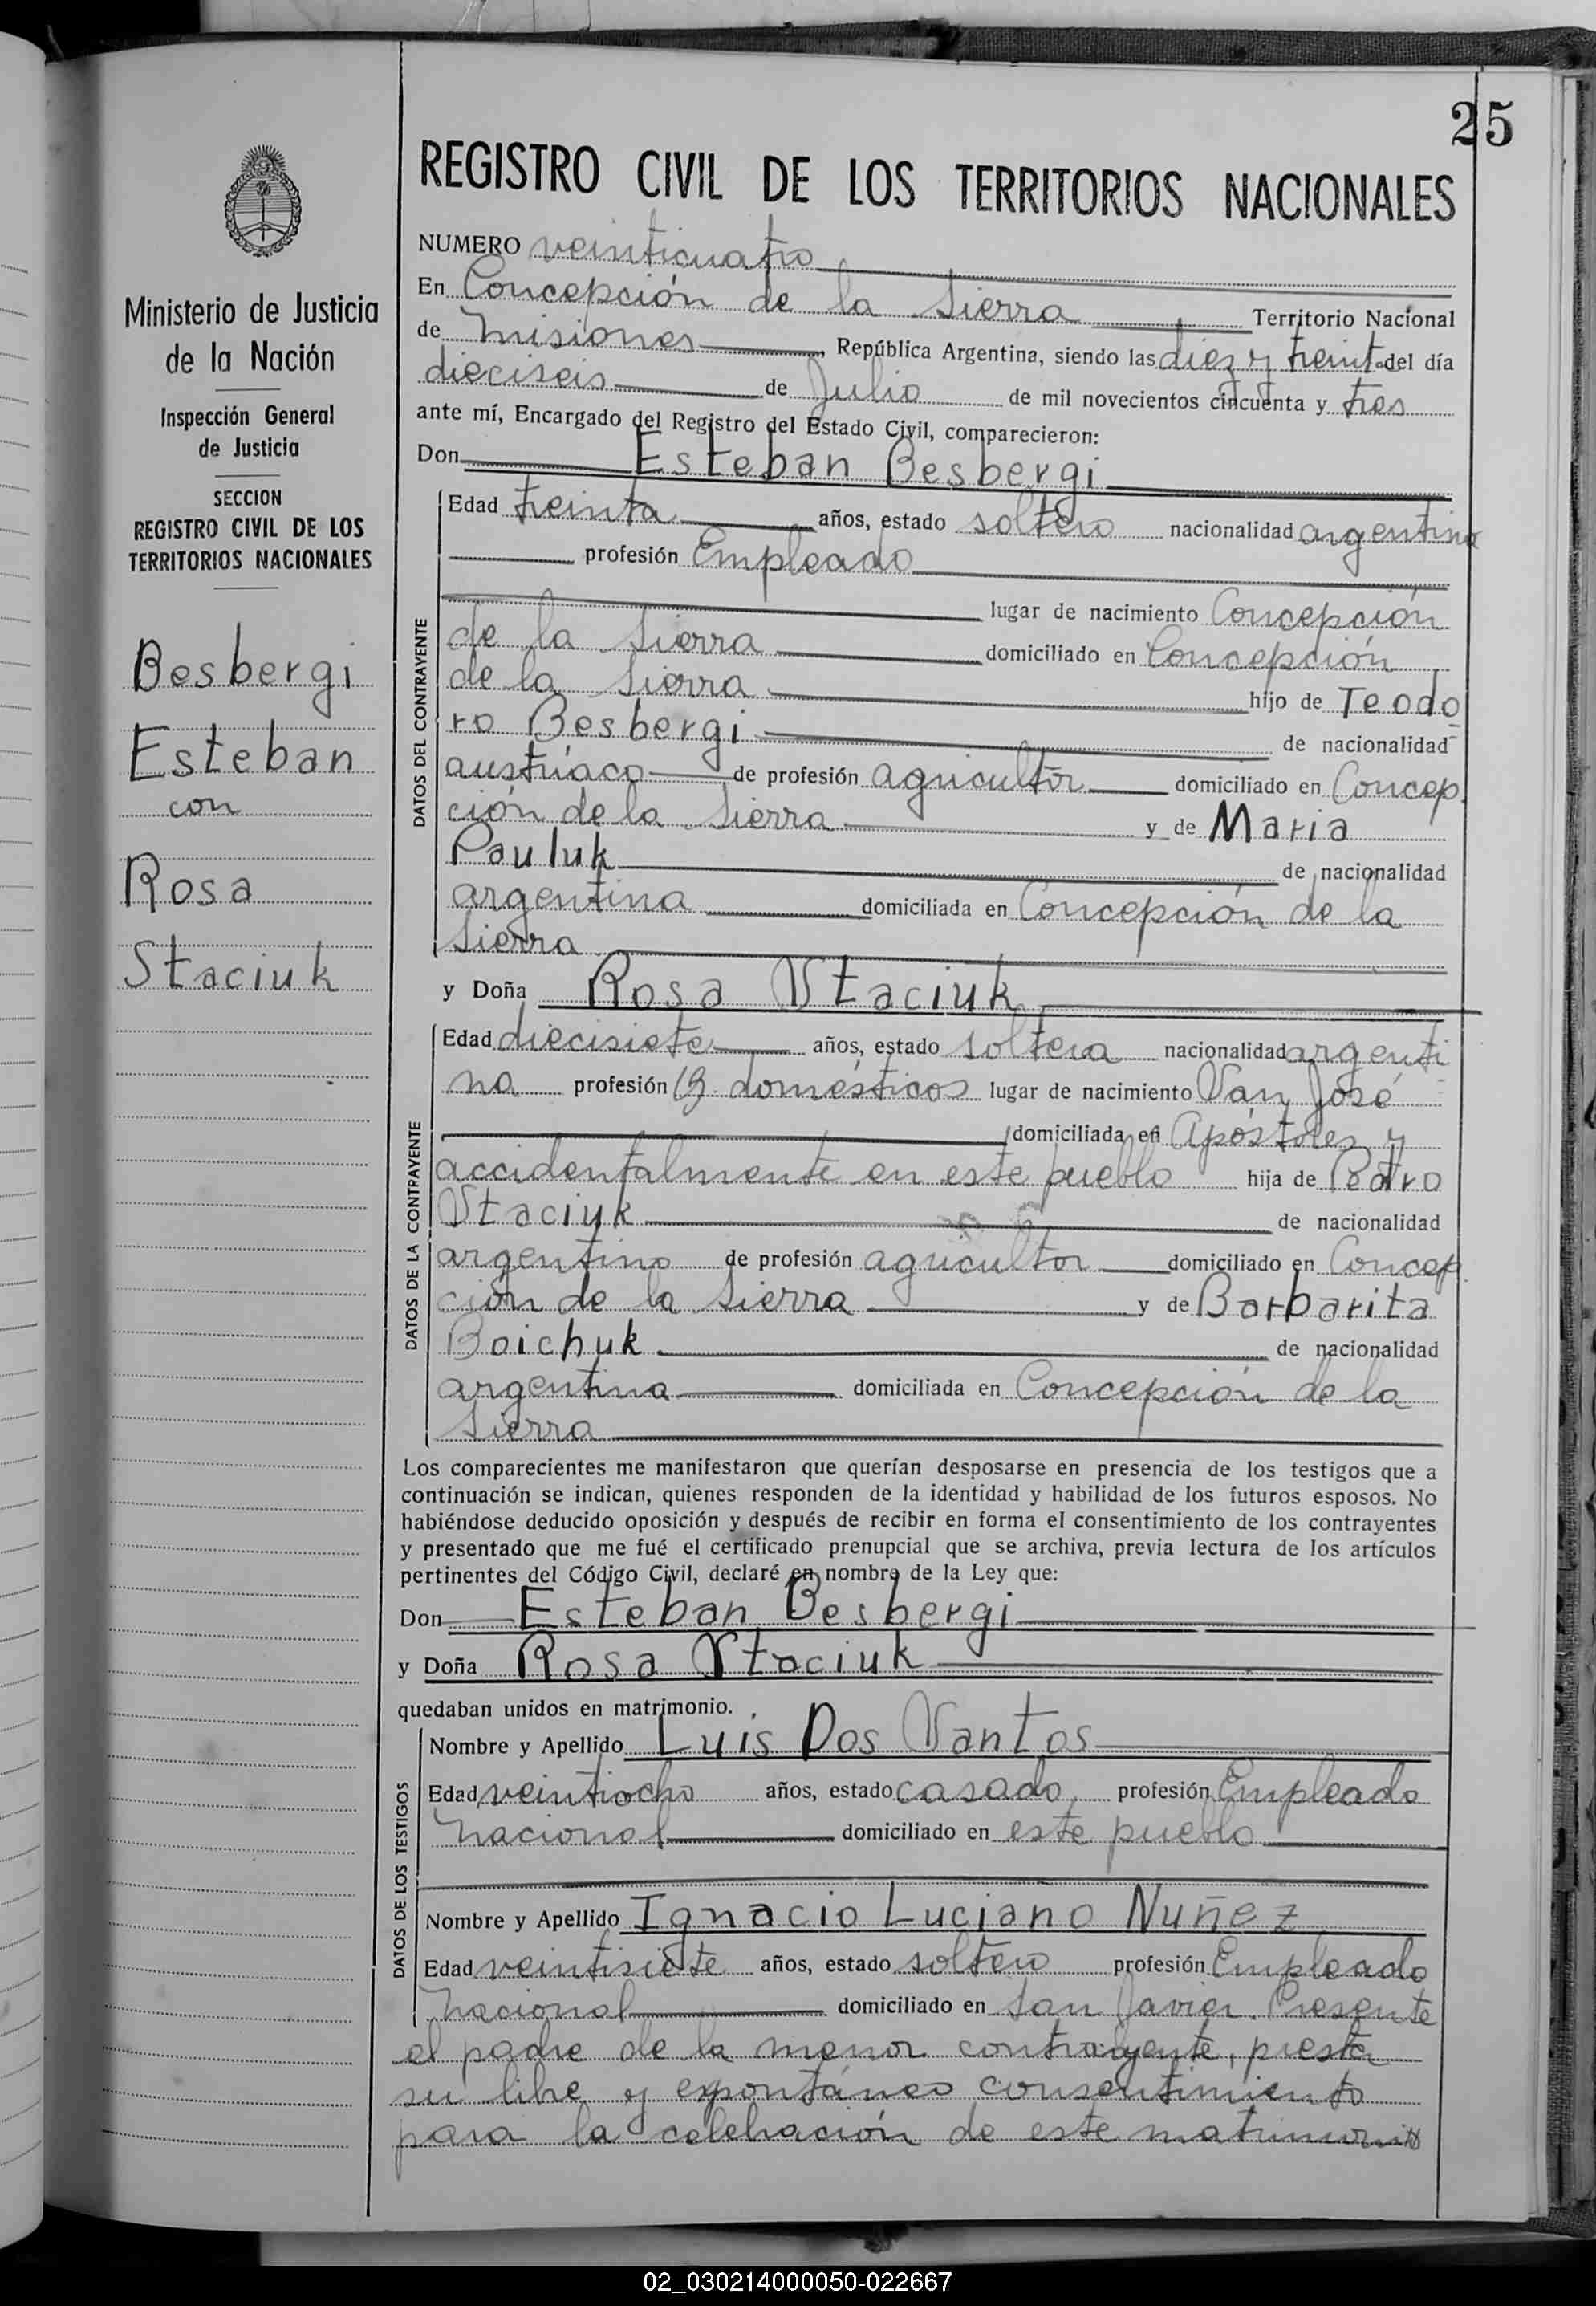 25
REGISTRO CIVIL DE LOS TERRITORIOS NACIONALES
Ministerio de Justicia
de la Nación
Inspección General
de Justicia
SECCION
REGISTRO CIVIL DE LOS
TERRITORIOS NACIONALES
Besbergi
Esteban
con
Rosa
Staciuk
NUMERO veinticuatro
En Concepción de la Sierra Territorio Nacional
de Misiones, República Argentina, siendo las diez y treinta del día
dieciseis de Julio de mil novecientos cincuenta y tres
ante mí, Encargado del Registro del Estado Civil, comparecieron:
Don Esteban Besbergi
DATOS DEL CONTRAYENTE
Edad treinta años, estado soltero nacionalidad argentina
profesión Empleado
lugar de nacimiento Concepción
de la Sierra domiciliado en Concepción
de la Sierra hijo de Teodo
ro Besbergi de nacionalidad
austríaco de profesión agricultor domiciliado en Concep
ción de la Sierra y de Maria
Pauluk de nacionalidad
argentina domiciliada en Concepción de la
Sierra
y Doña Rosa Staciuk
DATOS DE LA CONTRAYENTE
Edad diecisiete años, estado soltera nacionalidad argenti
na profesión Q. domésticos lugar de nacimiento San José
domiciliada en Apóstoles y
accidentalmente en este pueblo hija de Pedro
Staciuk de nacionalidad
argentino de profesión agricultor domiciliado en Concep
ción de la Sierra y de Barbarita
Boichuk de nacionalidad
argentina domiciliada en Concepción de la
Sierra
Los comparecientes me manifestaron que querían desposarse en presencia de los testigos que a
continuación se indican, quienes responden de la identidad y habilidad de los futuros esposos. No
habiéndose deducido oposición y después de recibir en forma el consentimiento de los contrayentes
y presentado que me fué el certificado prenupcial que se archiva, previa lectura de los artículos
pertinentes del Código Civil, declaré en nombre de la Ley que:
Don Esteban Besbergi
y Doña Rosa Staciuk
quedaban unidos en matrimonio.
DATOS DE LOS TESTIGOS
Nombre y Apellido Luis Dos Santos
Edad veintiocho años, estado casado profesión Empleado
Nacional domiciliado en este pueblo
Nombre y Apellido Ignacio Luciano Nuñez
Edad veintisiete años, estado soltero profesión Empleado
Nacional domiciliado en San Javier. Presente
el padre de la menor contrayente, presta
su libre y expontáneo consentimiento
para la celebración de este matrimonio
02_030214000050-022667